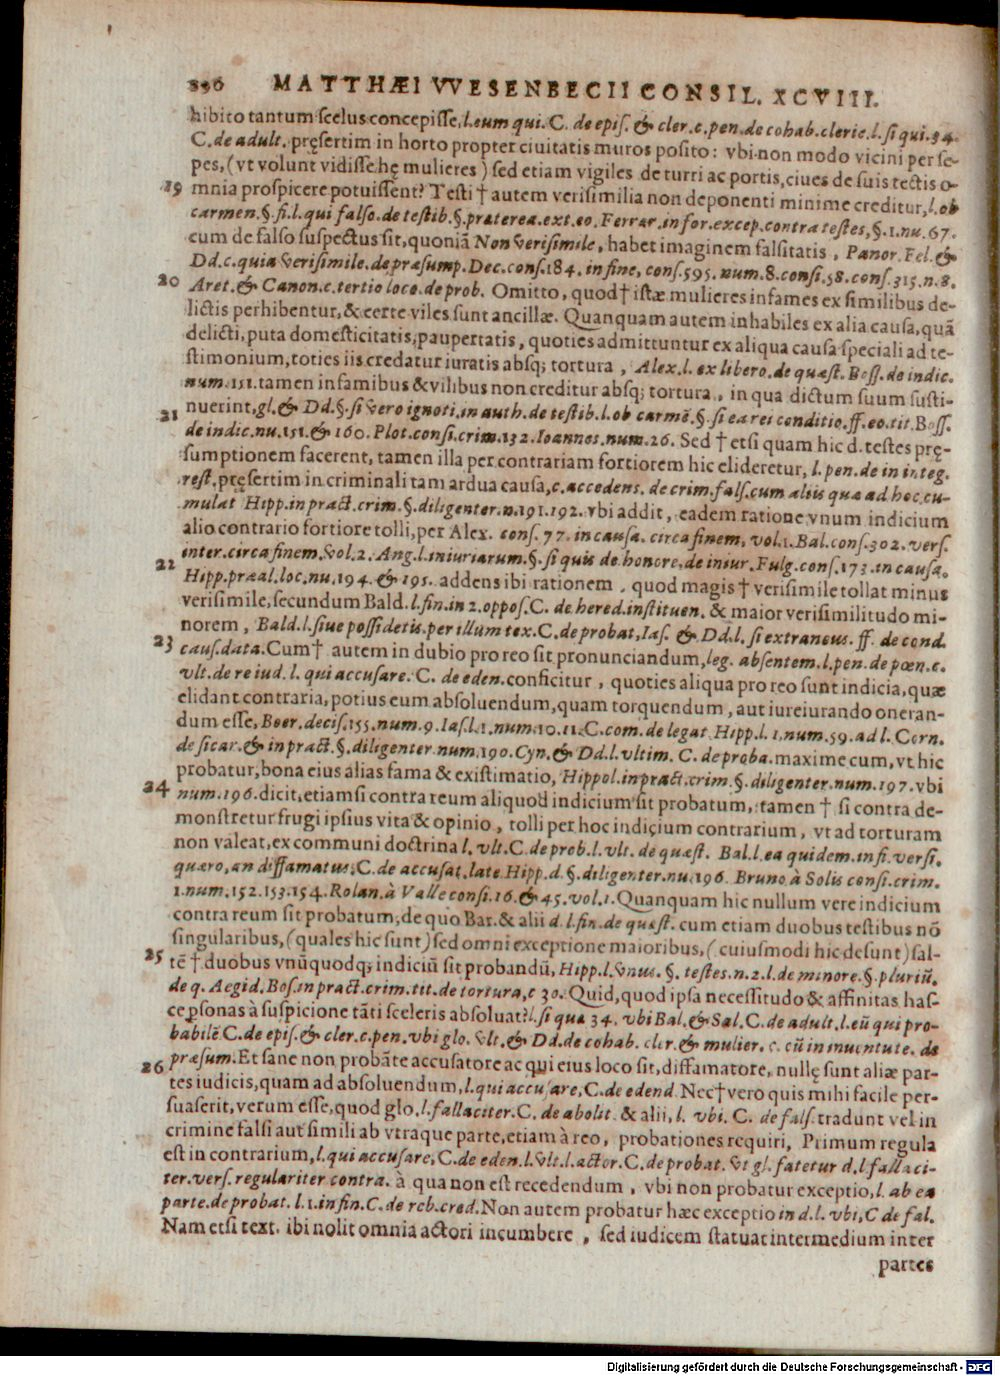 396 MATTHÆI VVESENBECII CONSIL. XCVIII.
hibito tantum scelus concepisse, l. eum qui. C. de epis. & cler. c. pen. de cohab. cleric. l. si qui. 34.
C. de adult. pręsertim in horto propter ciuitatis muros posito: vbi non modo vicini per se-
pes, (vt volunt vidisse hę mulieres) sed etiam vigiles de turri ac portis, ciues de suis tectis o-
19 mnia prospicere potuissent? Testi † autem verisimilia non deponenti minime creditur, l. ob
carmen. §. fi. l. qui falso. de testib. §. praterea. ext. eo. Ferrar. in for. excep. contra testes, §. 1. nu. 67.
cum de falso suspectus sit, quoniã Non verisimile, habet imaginem falsitatis, Panor. Fel. &
Dd. c. quia verisimile. de præsump. Dec. cons. 184. in fine, cons. 595. num. 8. consi. 58. cons. 315. n. 8.
20 Aret. & Canon. c. tertio loco. de prob. Omitto, quod † istæ mulieres infames ex similibus de-
lictis perhibentur, & certe viles sunt ancillæ. Quanquam autem inhabiles ex alia causa, quã
delicti, puta domesticitatis, paupertatis, quoties admittuntur ex aliqua causa speciali ad te-
stimonium, toties iis credatur iuratis absq; tortura, Alex. l. ex libero. de quæst. Boss. de indic.
num. 151. tamen infamibus & vilibus non creditur absq; tortura, in qua dictum suum susti-
nuerint, gl. & Dd. §. si vero ignoti, in auth. de testib. l. ob carmē. §. si ea rei conditio. ff. eo. tit. Boss.
21 de indic. nu. 151. & 160. Plot. consi. crim. 132. Ioannes. num. 26. Sed † etsi quam hic d. testes prę-
sumptionem facerent, tamen illa per contrariam fortiorem hic elideretur, l. pen. de in integ.
rest. pręsertim in criminali tam ardua causa, c. accedens. de crim. fals. cum aliis quæ ad hoc cu-
mulat Hipp. in pract. crim. §. diligenter. n. 191. 192. vbi addit, eadem ratione vnum indicium
alio contrario fortiore tolli, per Alex. cons. 77. in causa. circa finem, vol. 1. Bal. cons. 302. vers.
inter. circa finem. vol. 2. Ang. l. iniuriarum. §. si quis de honore, de iniur. Fulg. cons. 173. in causa.
22 Hipp. præal. loc. nu. 194. & 195. addens ibi rationem, quod magis † verisimile tollat minus
verisimile, secundum Bald. l. fin. in 2. oppos. C. de hered. instituen. & maior verisimilitudo mi-
norem, Bald. l. siue possidetis. per illum tex. C. de probat, Ias. & Dd. l. si extraneus. ff. de cond.
23 caus. data. Cum † autem in dubio pro reo sit pronunciandum, leg. absentem. l. pen. de pœn. c.
vlt. de re iud. l. qui accusare. C. de eden. conficitur, quoties aliqua pro reo sunt indicia, quæ
elidant contraria, potius eum absoluendum, quam torquendum, aut iureiurando oneran-
dum esse, Boer. decis. 155. num. 9. Ias. l. 1. num. 10. 11. C. com. de legat. Hipp. l. 1. num. 59. ad l. Corn.
de sicar. & in pract. §. diligenter. num. 190. Cyn. & Dd. l. vltim. C. de proba. maxime cum, vt hic
probatur, bona eius alias fama & existimatio, Hippol. in pract. crim. §. diligenter. num. 197. vbi
24 num. 196. dicit, etiamsi contra reum aliquod indicium sit probatum, tamen † si contra de-
monstretur frugi ipsius vita & opinio, tolli per hoc indicium contrarium, vt ad torturam
non valeat, ex communi doctrina l. vlt. C. de prob. l. vlt. de quæst. Bal. l. ea quidem. in fi. versi.
quæro, an diffamatus, C. de accusat. late Hipp. d. §. diligenter. nu. 196. Bruno. à Solis consi. crim.
1. num. 152. 153. 154. Rolan. à Valle consi. 16. & 45. vol. 1. Quanquam hic nullum vere indicium
contra reum sit probatum, de quo Bar. & alii d. l. fin. de quæst. cum etiam duobus testibus nō
singularibus, (quales hic sunt) sed omni exceptione maioribus, (cuiusmodi hic desunt) sal-
25 tē † duobus vnūquodq; indiciū sit probandū, Hipp. l. vnus. §. testes. n. 2. l. de minore. §. pluriū.
de q. Aegid. Bos. in pract. crim. tit. de tortura, c 30. Quid, quod ipsa necessitudo & affinitas has-
ce personas à suspicione tāti sceleris absoluat? l. si qua 34. vbi Bal. & Sal. C. de adult. l. eū qui pro-
babilē C. de epis. & cler. c. pen. vbi glo. vlt. & Dd. de cohab. clir. & mulier. c. cū in iuuentute. de
26 præsum. Et sane non probāte accusatore ac qui eius loco sit, diffamatore, nullę sunt aliæ par-
tes iudicis, quam ad absoluendum, l. qui accusare, C. de edend. Nec † vero quis mihi facile per-
suaserit, verum esse, quod glo. l. fallaciter. C. de abolit. & alii, l. vbi. C. de fals. tradunt vel in
crimine falsi aut simili ab vtraque parte, etiam à reo, probationes requiri, Primum regula
est in contrarium, l. qui accusare, C. de eden. l. vlt. l. actor. C. de probat. vt gl. fatetur d. l. fallaci-
ter. vers. regulariter contra. à qua non est recedendum, vbi non probatur exceptio, l. ab ea
parte. de probat. l. 1. in fin. C. de reb. cred. Non autem probatur hæc exceptio in d. l. vbi, C de fal.
Nam etsi text. ibi nolit omnia actori incumbere, sed iudicem statuat intermedium inter
partes
Digitalisierung gefördert durch die Deutsche Forschungsgemeinschaft - DFG